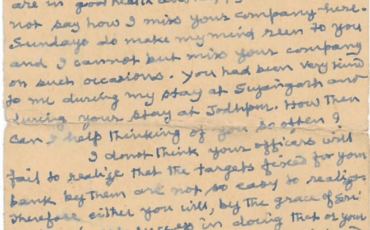 are in good health
not say how I miss your company here.
Sundays do make my mind reen to you
and I cannot but miss your company
on such occasions. You had been very kind
to me during my stay at Sujangarh and
during your stay at Jodhpur. How then
can I help thinking of you so often?
I do not think your officers will
fail to realize that the targets fixed for your
bank by them are not so easy to realize
Therefore either you will, by the grace of Sri
success in doing that or your